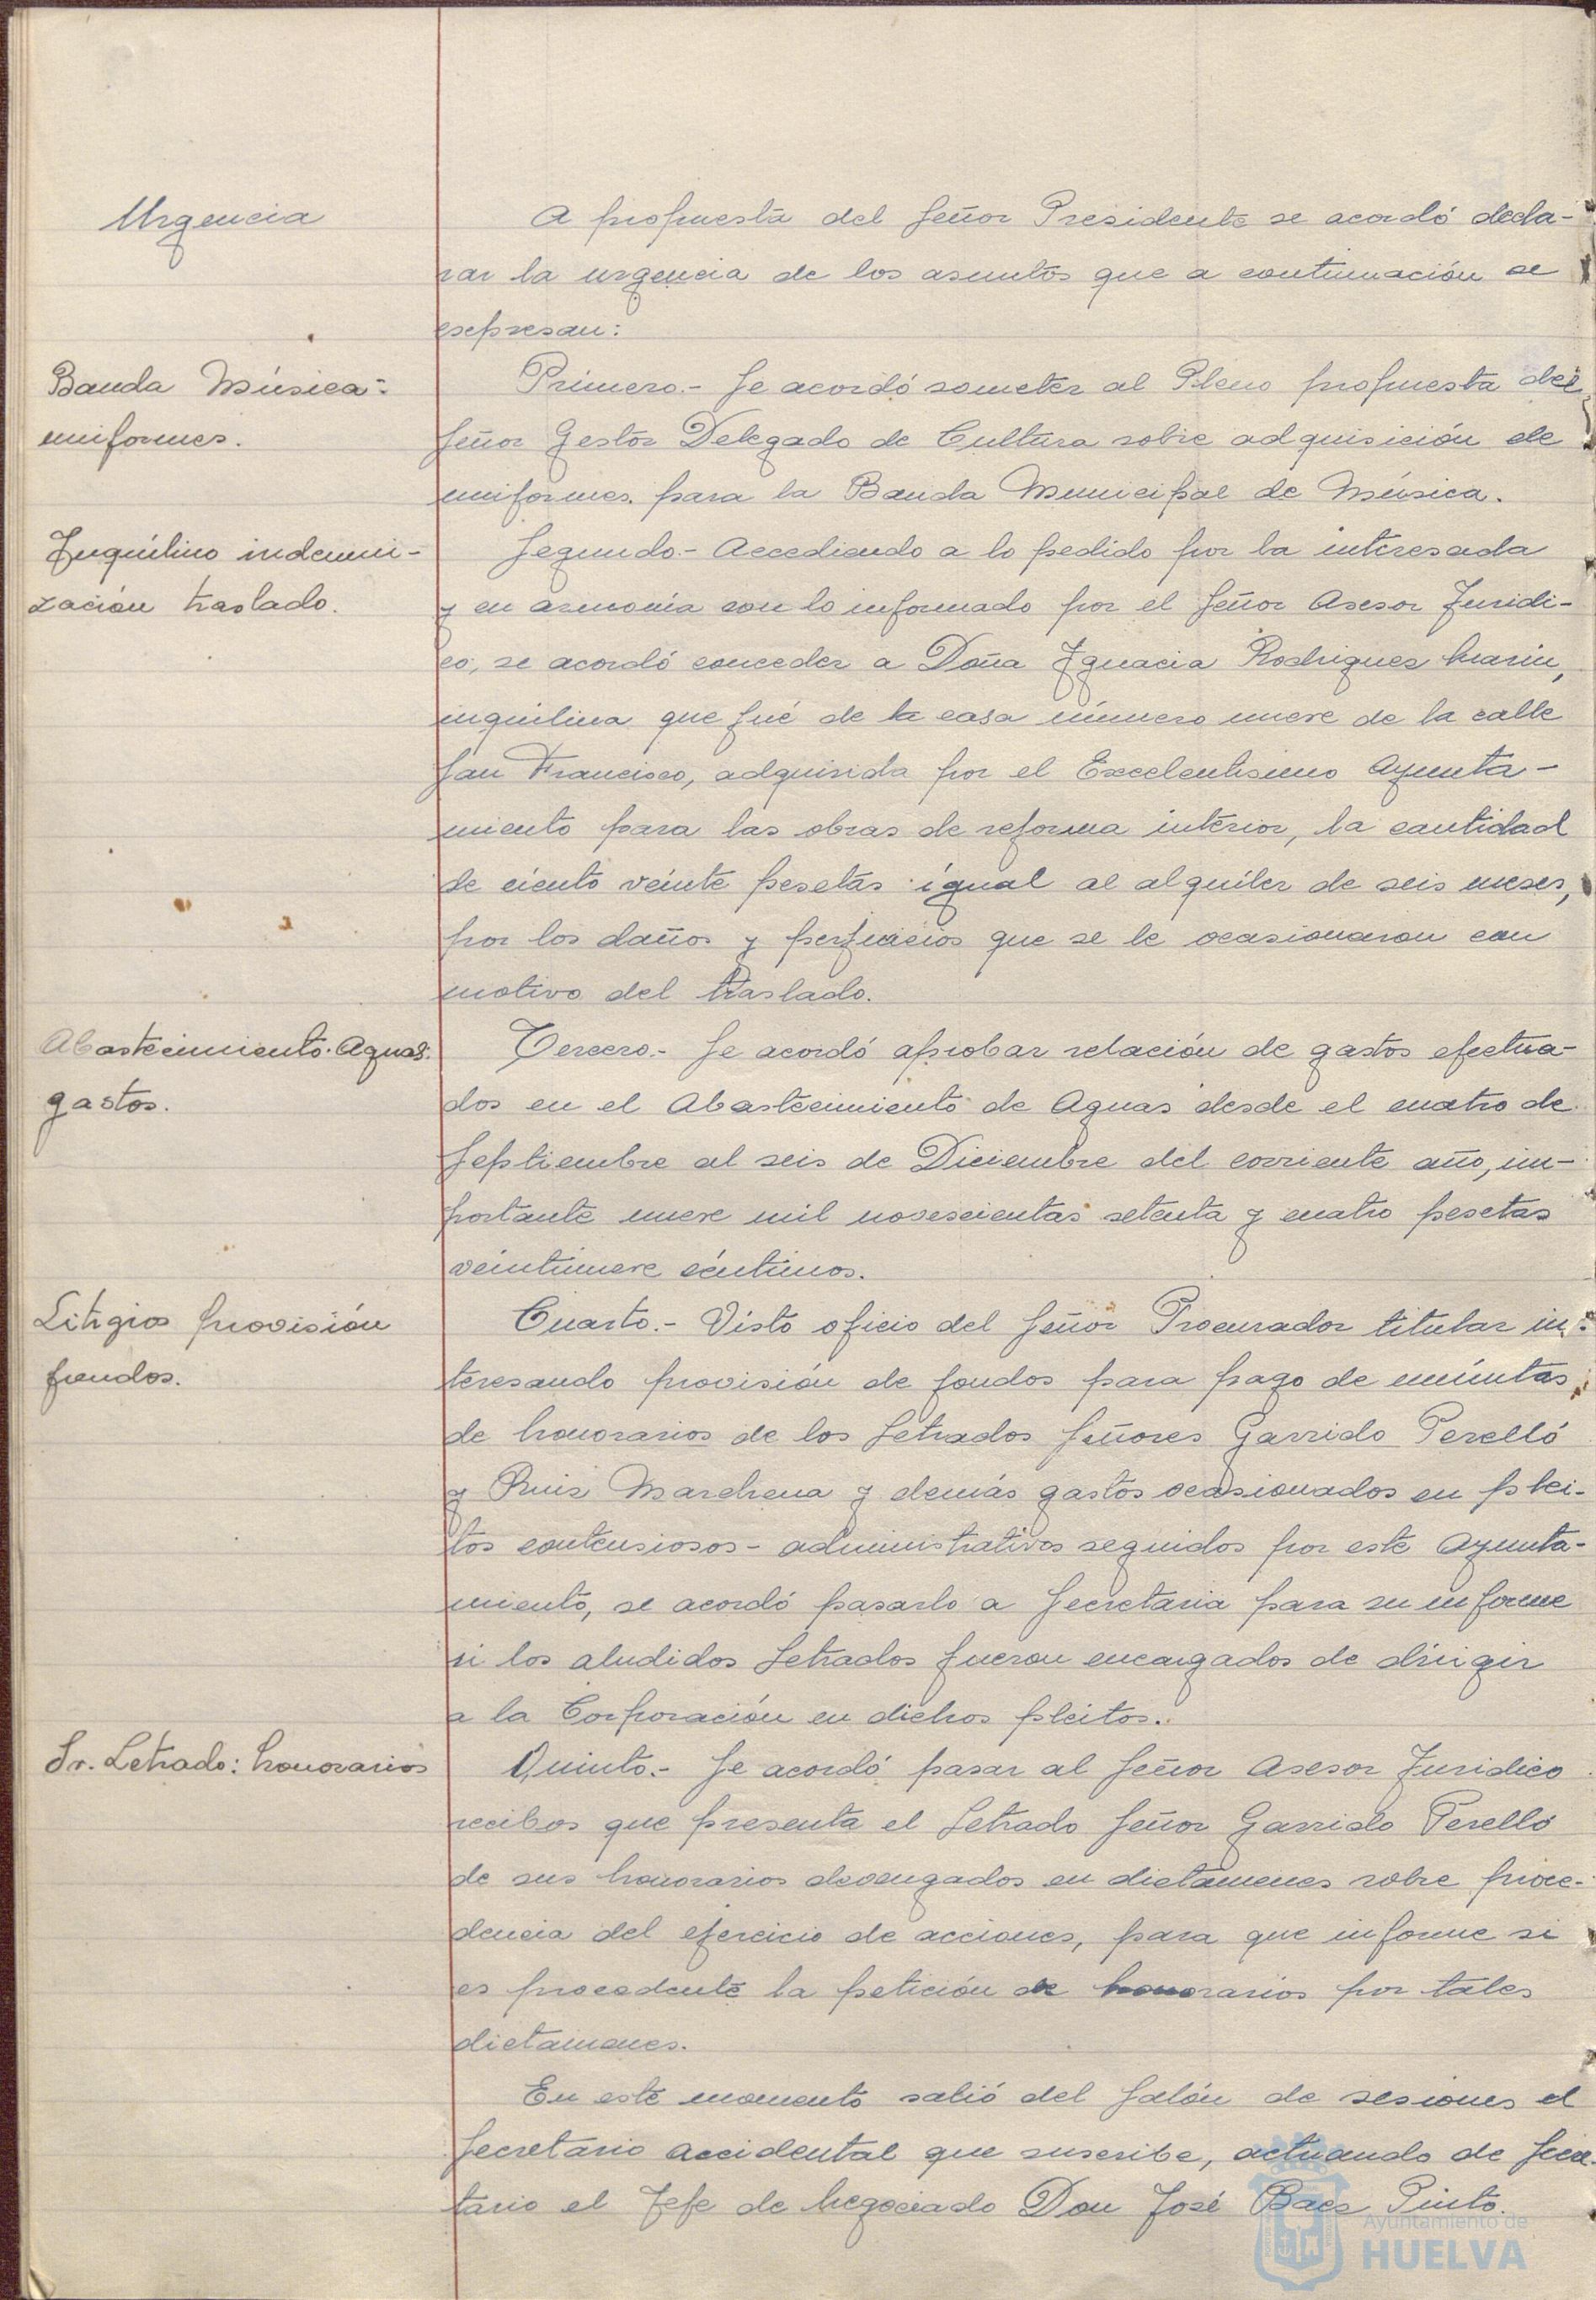 Urgencia
A propuesta del Señor Presidente se acordó decla-
rar la urgencia de los asuntos que a continuación se
expresan:
Banda Música:
uniformes.
Primero.- Se acordó someter al Pleno propuesta del
Señor Gestor Delegado de Cultura sobre adquisición de
uniformes para la Banda Municipal de Música.
Inquilino indemni-
zación traslado.
Segundo.- Accediendo a lo pedido por la interesada
y en armonía con lo informado por el Señor Asesor Juridi-
co, se acordó conceder a Doña Ignacia Rodrigues Marin,
inquilina que fué de la casa número nueve de la calle
San Francisco, adquirida por el Excelentisimo Ayunta-
miento para las obras de reforma interior, la cantidad
de ciento veinte pesetas igual al alquiler de seis meses,
por los daños y perjuicios que se le ocasionaron con
motivo del traslado.
Abastecimiento Aguas:
gastos.
Tercero.- Se acordó aprobar relación de gastos efectua-
dos en el Abastecimiento de Aguas desde el cuatro de
Septiembre al seis de Diciembre del corriente año, im-
portante nueve mil novescientas setenta y cuatro pesetas
veintinueve céntimos.
Litigios provisión
fondos.
Cuarto.- Visto oficio del Señor Procurador titular in-
teresando provisión de fondos para pago de minutas
de honorarios de los Letrados Señores Garrido Perelló
y Ruis Marchena y demás gastos ocasionados en plei-
tos contensiosos-administrativos seguidos por este Ayunta-
miento, se acordó pasarlo a Secretaria para su informe
si los aludidos Letrados fueron encargados de dirigir
a la Corporación en dichos pleitos.
Sr. Letrado: honorarios
Quinto.- Se acordó pasar al Señor Asesor Juridico
recibos que presenta el Letrado Señor Garrido Perelló
de sus honorarios devengados en dictamenes sobre proce-
dencia del ejercicio de acciones, para que informe si
es procedente la petición de honorarios por tales
dictamenes.
En este momento salió del Salón de sesiones el
Secretario accidental que suscribe, actuando de Secre-
tario el Jefe de Negociado Don José Baes Pinto.
Ayuntamiento de
HUELVA